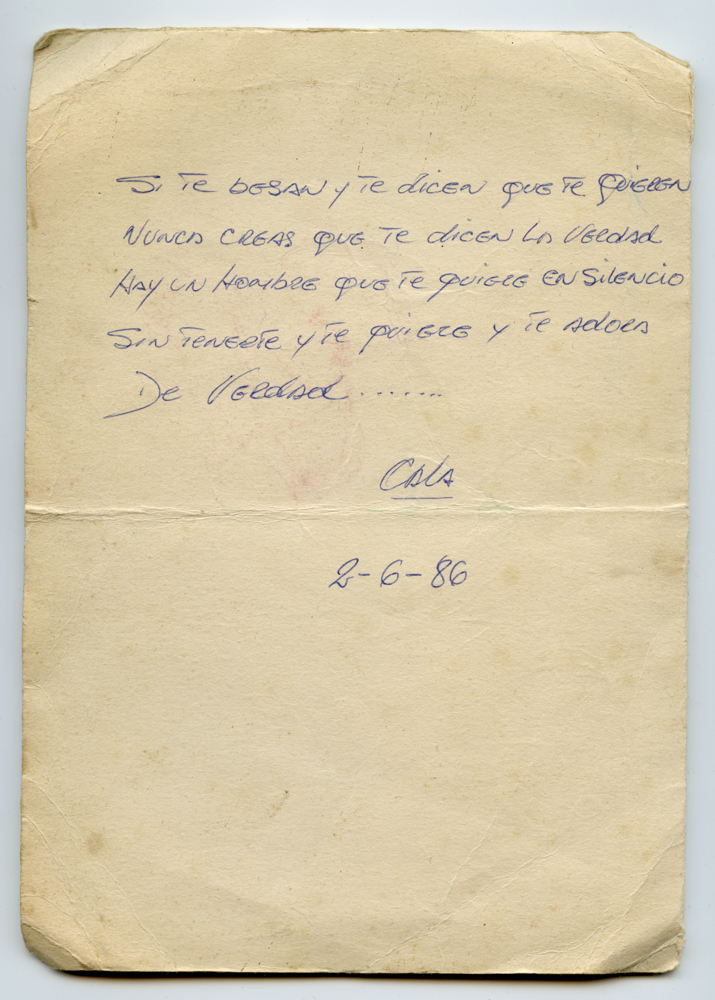 Si te besan y te dicen que te quieren
Nunca creas que te dicen la verdad
Hay un hombre que te quiere en silencio
Sin tenerte y te quiere y te adora
De verdad........
Cala
2-6-86